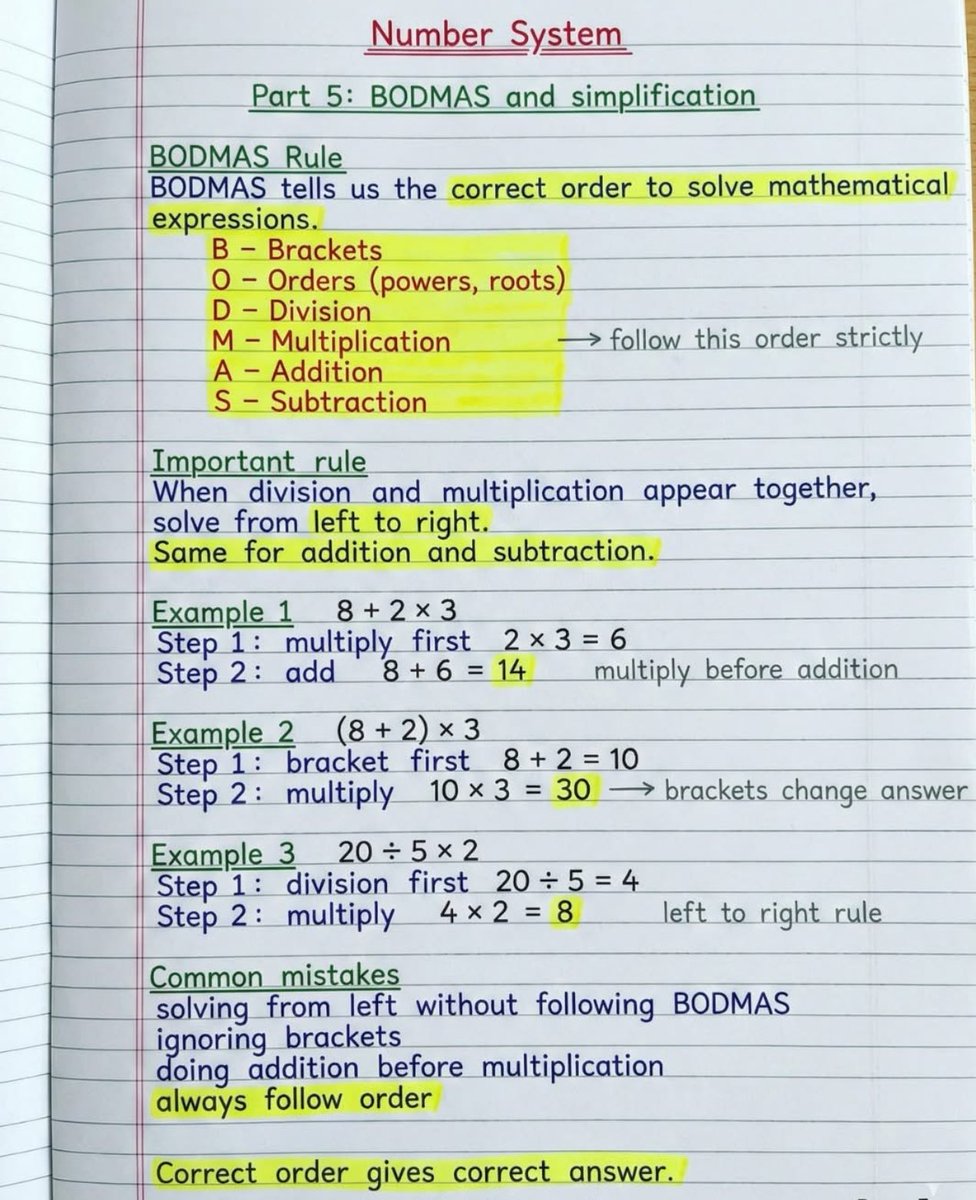 Number System
Part 5: BODMAS and simplification
BODMAS Rule
BODMAS tells us the correct order to solve mathematical
expressions.
B – Brackets
O – Orders (powers, roots)
D – Division
M – Multiplication → follow this order strictly
A – Addition
S – Subtraction
Important rule
When division and multiplication appear together,
solve from left to right.
Same for addition and subtraction.
Example 1 8 + 2 × 3
Step 1: multiply first 2 × 3 = 6
Step 2: add 8 + 6 = 14 multiply before addition
Example 2 (8 + 2) × 3
Step 1: bracket first 8 + 2 = 10
Step 2: multiply 10 × 3 = 30 → brackets change answer
Example 3 20 ÷ 5 × 2
Step 1: division first 20 ÷ 5 = 4
Step 2: multiply 4 × 2 = 8 left to right rule
Common mistakes
solving from left without following BODMAS
ignoring brackets
doing addition before multiplication
always follow order
Correct order gives correct answer.